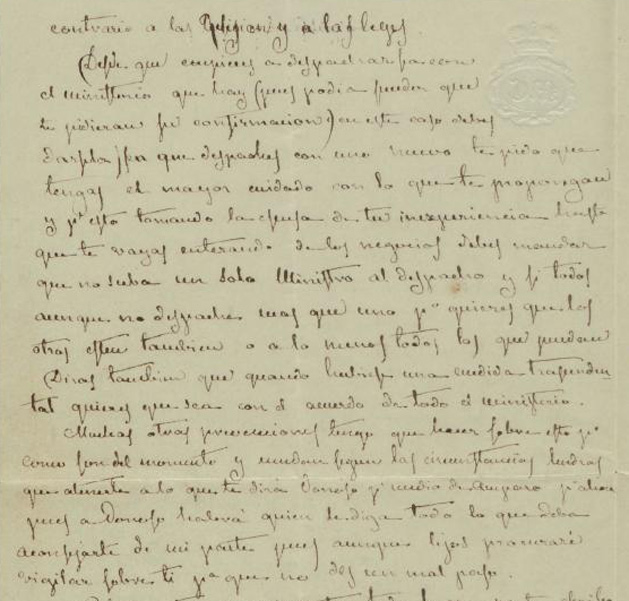 contrario a la Religion y a las leyes
Desde que empieces a despachar sea con
el ministerio que hay (pues podia suceder que
te pidieran su confirmacion) en este caso debes
darsela) sea que despaches con uno nuevo te pido que
tengas el mayor cuidado con lo que te propongan
y pª esto tomando la escusa de tu inexperiencia hasta
que te vayas enterando de los negocios debes mandar
que no suba un solo Ministro al despacho y si todos
aunque no despache mas que uno pº quieres que los
otros esten tambien o a lo menos todos los que puedan
Diras tambien que quando hubiese una medida trascenden
tal quieres que sea con el acuerdo de todo el ministerio.
Muchas otras prevenciones tengo que hacer sobre esto pº
como son del momento y mudan segun las circunstancias tendras
que atenerte a lo que te dirá Donoso pr medio de Amparo
pues a Donoso habrá quien le diga todo lo que deba
aconsejarte de mi parte pues aunque lejos procuraré
vigilar sobre ti pª que no des un mal paso.